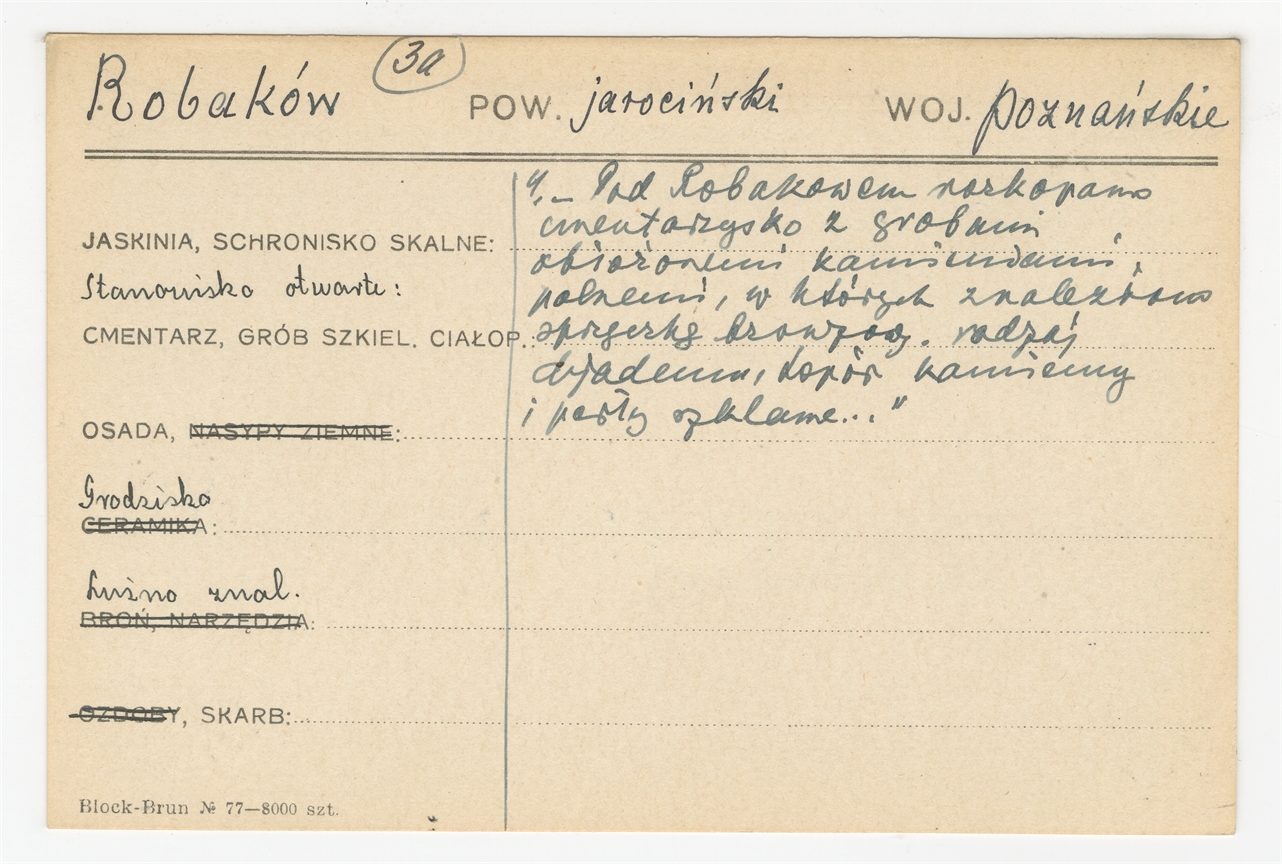 Robaków 3a POW. jarociński WOJ. poznańskie
„– Pod Robakowem rozkopano
cmentarzysko z grobami
JASKINIA, SCHRONISKO SKALNE:
obłożonemi kamieniami
Stanowisko otwarte:
polnemi, w których znaleziono
CMENTARZ, GRÓB SZKIEL. CIAŁOP.:
sprzączkę bronzową, rodzaj
djademu, topór kamienny
i perły szklane..."
OSADA, NASYPY ZIEMNE:
Grodzisko
CERAMIKA:
Luźno znal.
BROŃ, NARZĘDZIA:
OZDOBY, SKARB:
Block-Brun № 77—8000 szt.